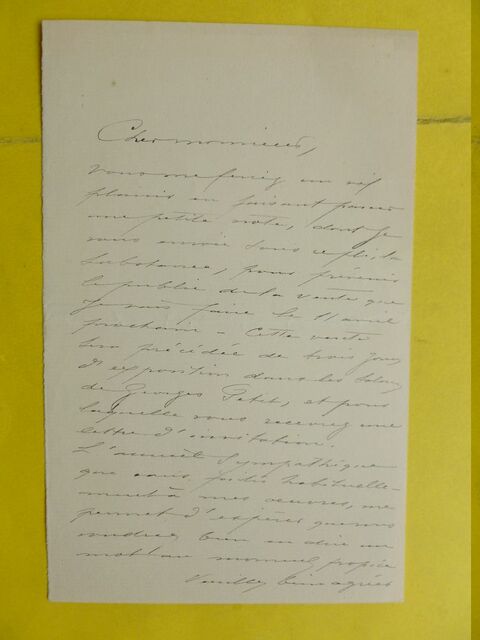 Cher monsieur,
Vous me feriez un vif
plaisir en faisant passer
une petite note, dont je
vous envoie sous ce pli, la
substance, pour prévenir
le public de la vente que
je vais faire le 11 avril
prochain - Cette vente
sera précédée de trois jours
d'exposition dans les salons
de Georges Petit, et pour
laquelle vous recevrez une
lettre d'invitation.
L'accueil sympathique
que vous faites habituelle-
ment à mes oeuvres, me
permet d'espérer que vous
voudrez bien en dire un
mot au moment propice
Veuillez bien agréer